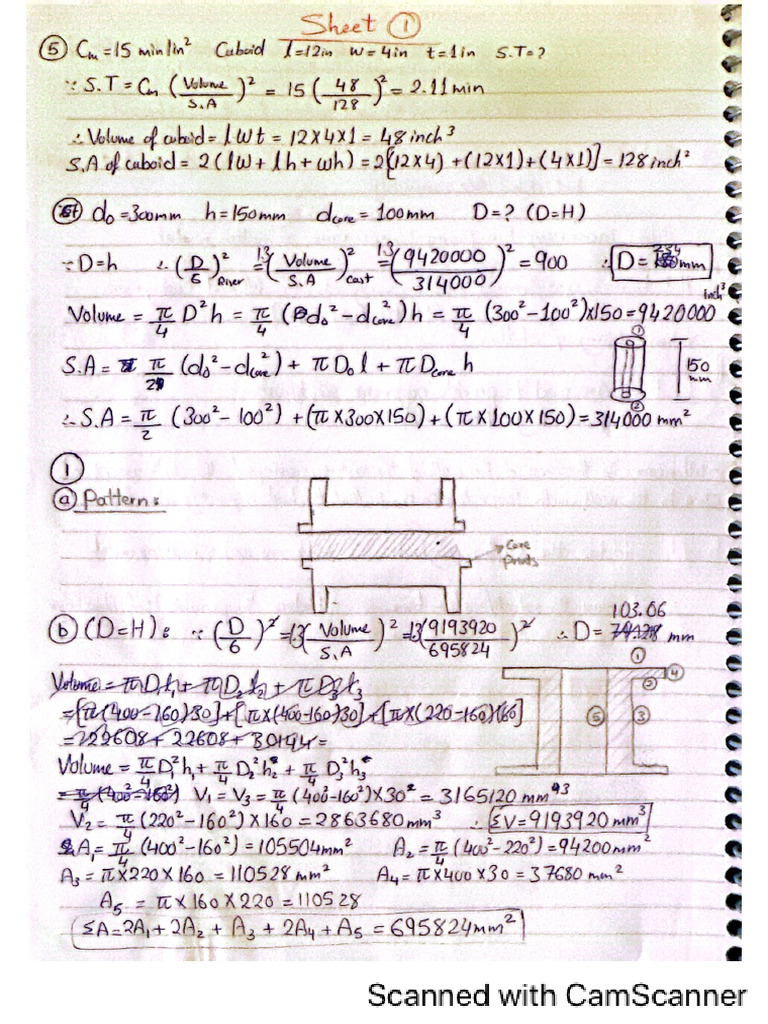 Sheet ①
⑤ Cm = 15 min/in² Cuboid l=12in w=4in t=1in S.T=?
∵ S.T = Cm (Volume / S.A)² = 15 (48 / 128)² = 2.11 min
∴ Volume of cuboid = l w t = 12 x 4 x 1 = 48 inch³
S.A of cuboid = 2(lw + lh + wh) = 2[(12x4) + (12x1) + (4x1)] = 128 inch²
d₀ = 300mm h = 150mm dcore = 100mm D = ? (D=H)
∵ D=h ∴ (D/6)² River = 1.3 (Volume / S.A)² Cast = 1.3 (9420000 / 314000)² = 900 ∴ D = 234 mm
Volume = π/4 D² h = π/4 (d₀² - dcore²) h = π/4 (300² - 100²) x 150 = 9420000 inch³
S.A = π/2 (d₀² - dcore²) + π D₀ l + π Dcore h
① ② 150 mm
∴ S.A = π/2 (300² - 100²) + (π x 300 x 150) + (π x 100 x 150) = 314000 mm²
①
ⓐ Pattern:
Core prints
ⓑ (D=H): ∵ (D/6)² = 1.3 (Volume / S.A)² = 1.3 (9193920 / 695824)² ∴ D = 103.06 mm
① ② ③ ④ ⑤
Volume = πD₁h₁ + πD₂h₂ + πD₃h₃
= [π(400-160)30] + [πx(400-160)30] + [πx(220-160)160]
= 22608 + 22608 + 30144 =
Volume = π/4 D₁²h₁ + π/4 D₂²h₂ + π/4 D₃²h₃
V₁ = V₃ = π/4 (400² - 160²) x 30 = 3165120 mm³
V₂ = π/4 (220² - 160²) x 160 = 2863680 mm³ ∴ ΣV = 9193920 mm³
A₁ = π/4 (400² - 160²) = 105504mm² A₂ = π/4 (400² - 220²) = 94200mm²
A₃ = π x 220 x 160 = 110528 mm² A₄ = π x 400 x 30 = 37680 mm²
A₅ = π x 160 x 220 = 110528
ΣA = 2A₁ + 2A₂ + A₃ + 2A₄ + A₅ = 695824mm²
Scanned with CamScanner